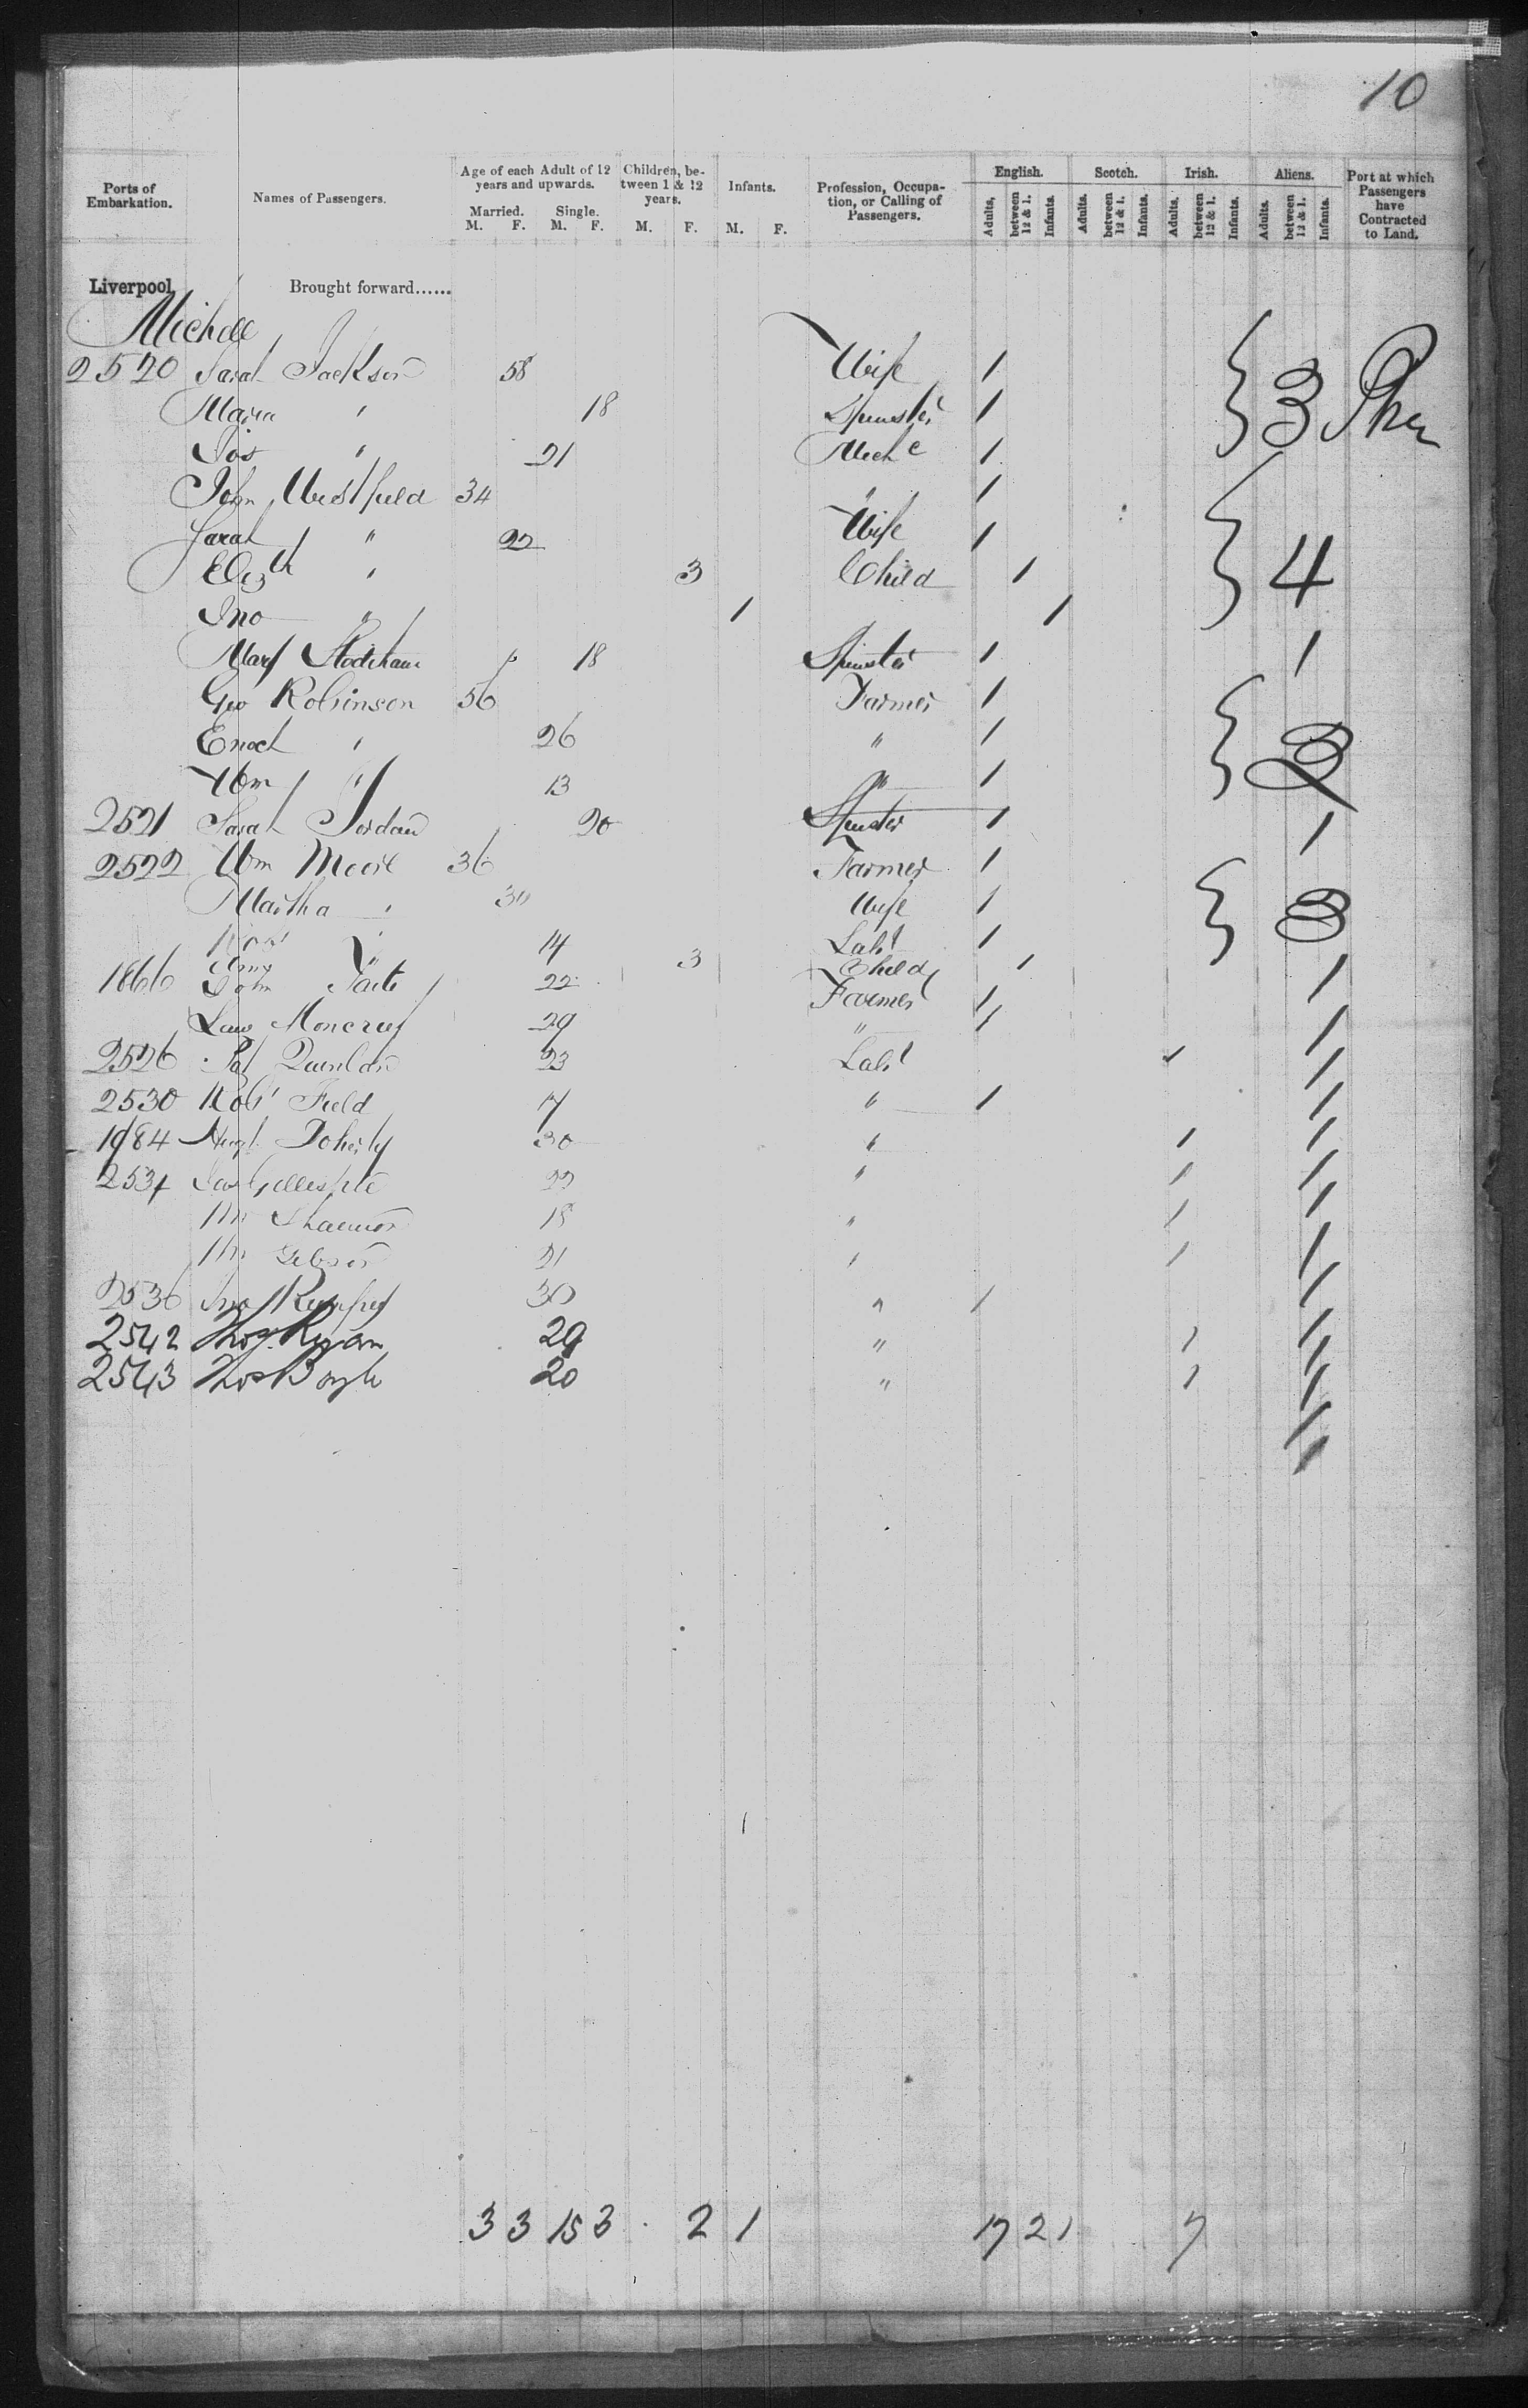 10
Ports of Embarkation. Names of Passengers. Age of each Adult of 12 years and upwards. Married. M. F. Single. M. F. Children, between 1 & 12 years. M. F. Infants. M. F. Profession, Occupation, or Calling of Passengers. English. Adults, between 12 & 1. Infants. Scotch. Adults. between 12 & 1. Infants. Irish. Adults, between 12 & 1. Infants. Aliens. Adults. between 12 & 1. Infants. Port at which Passengers have Contracted to Land.
Liverpool Brought forward......
Michell
2520 Sarah Jackson 58 Wife 1 3
Maria " 18 Spinster 1
Jos " 21 Mech c 1
John Westfield 34 " 1
Sarah " 22 Wife 1 4
Elizth " 3 Child 1
Jno " 1 1
Mary 18 Spinster 1 1
Geo Robinson 56 Farmer 1
Enoch " 26 " 1 3
Wm " 13 " 1
2521 Sarah Jordan 20 Spinster 1 1
2522 Wm Moore 36 Farmer 1
Martha " 30 Wife 1 3
Robt " 14 Labr 1
Amy " 3 Child 1 1
1866 John Taite 22 Farmer 1
Law Moncrief 29 " 1 1
2526 Pat Quinlan 23 Labr 1 1
2530 Robt Field 17 " 1 1
1984 Hugh Doherty 30 " 1 1
2534 Jas Gillespie 22 " 1 1
Wm 18 " 1 1
Wm Gibson 21 " 1 1
2536 Jno 30 " 1 1
2542 Thos. Ryan 29 " 1 1
2543 Thos Boyle 20 " 1 1
1
1
3 3 15 3 2 1 17 2 1 7